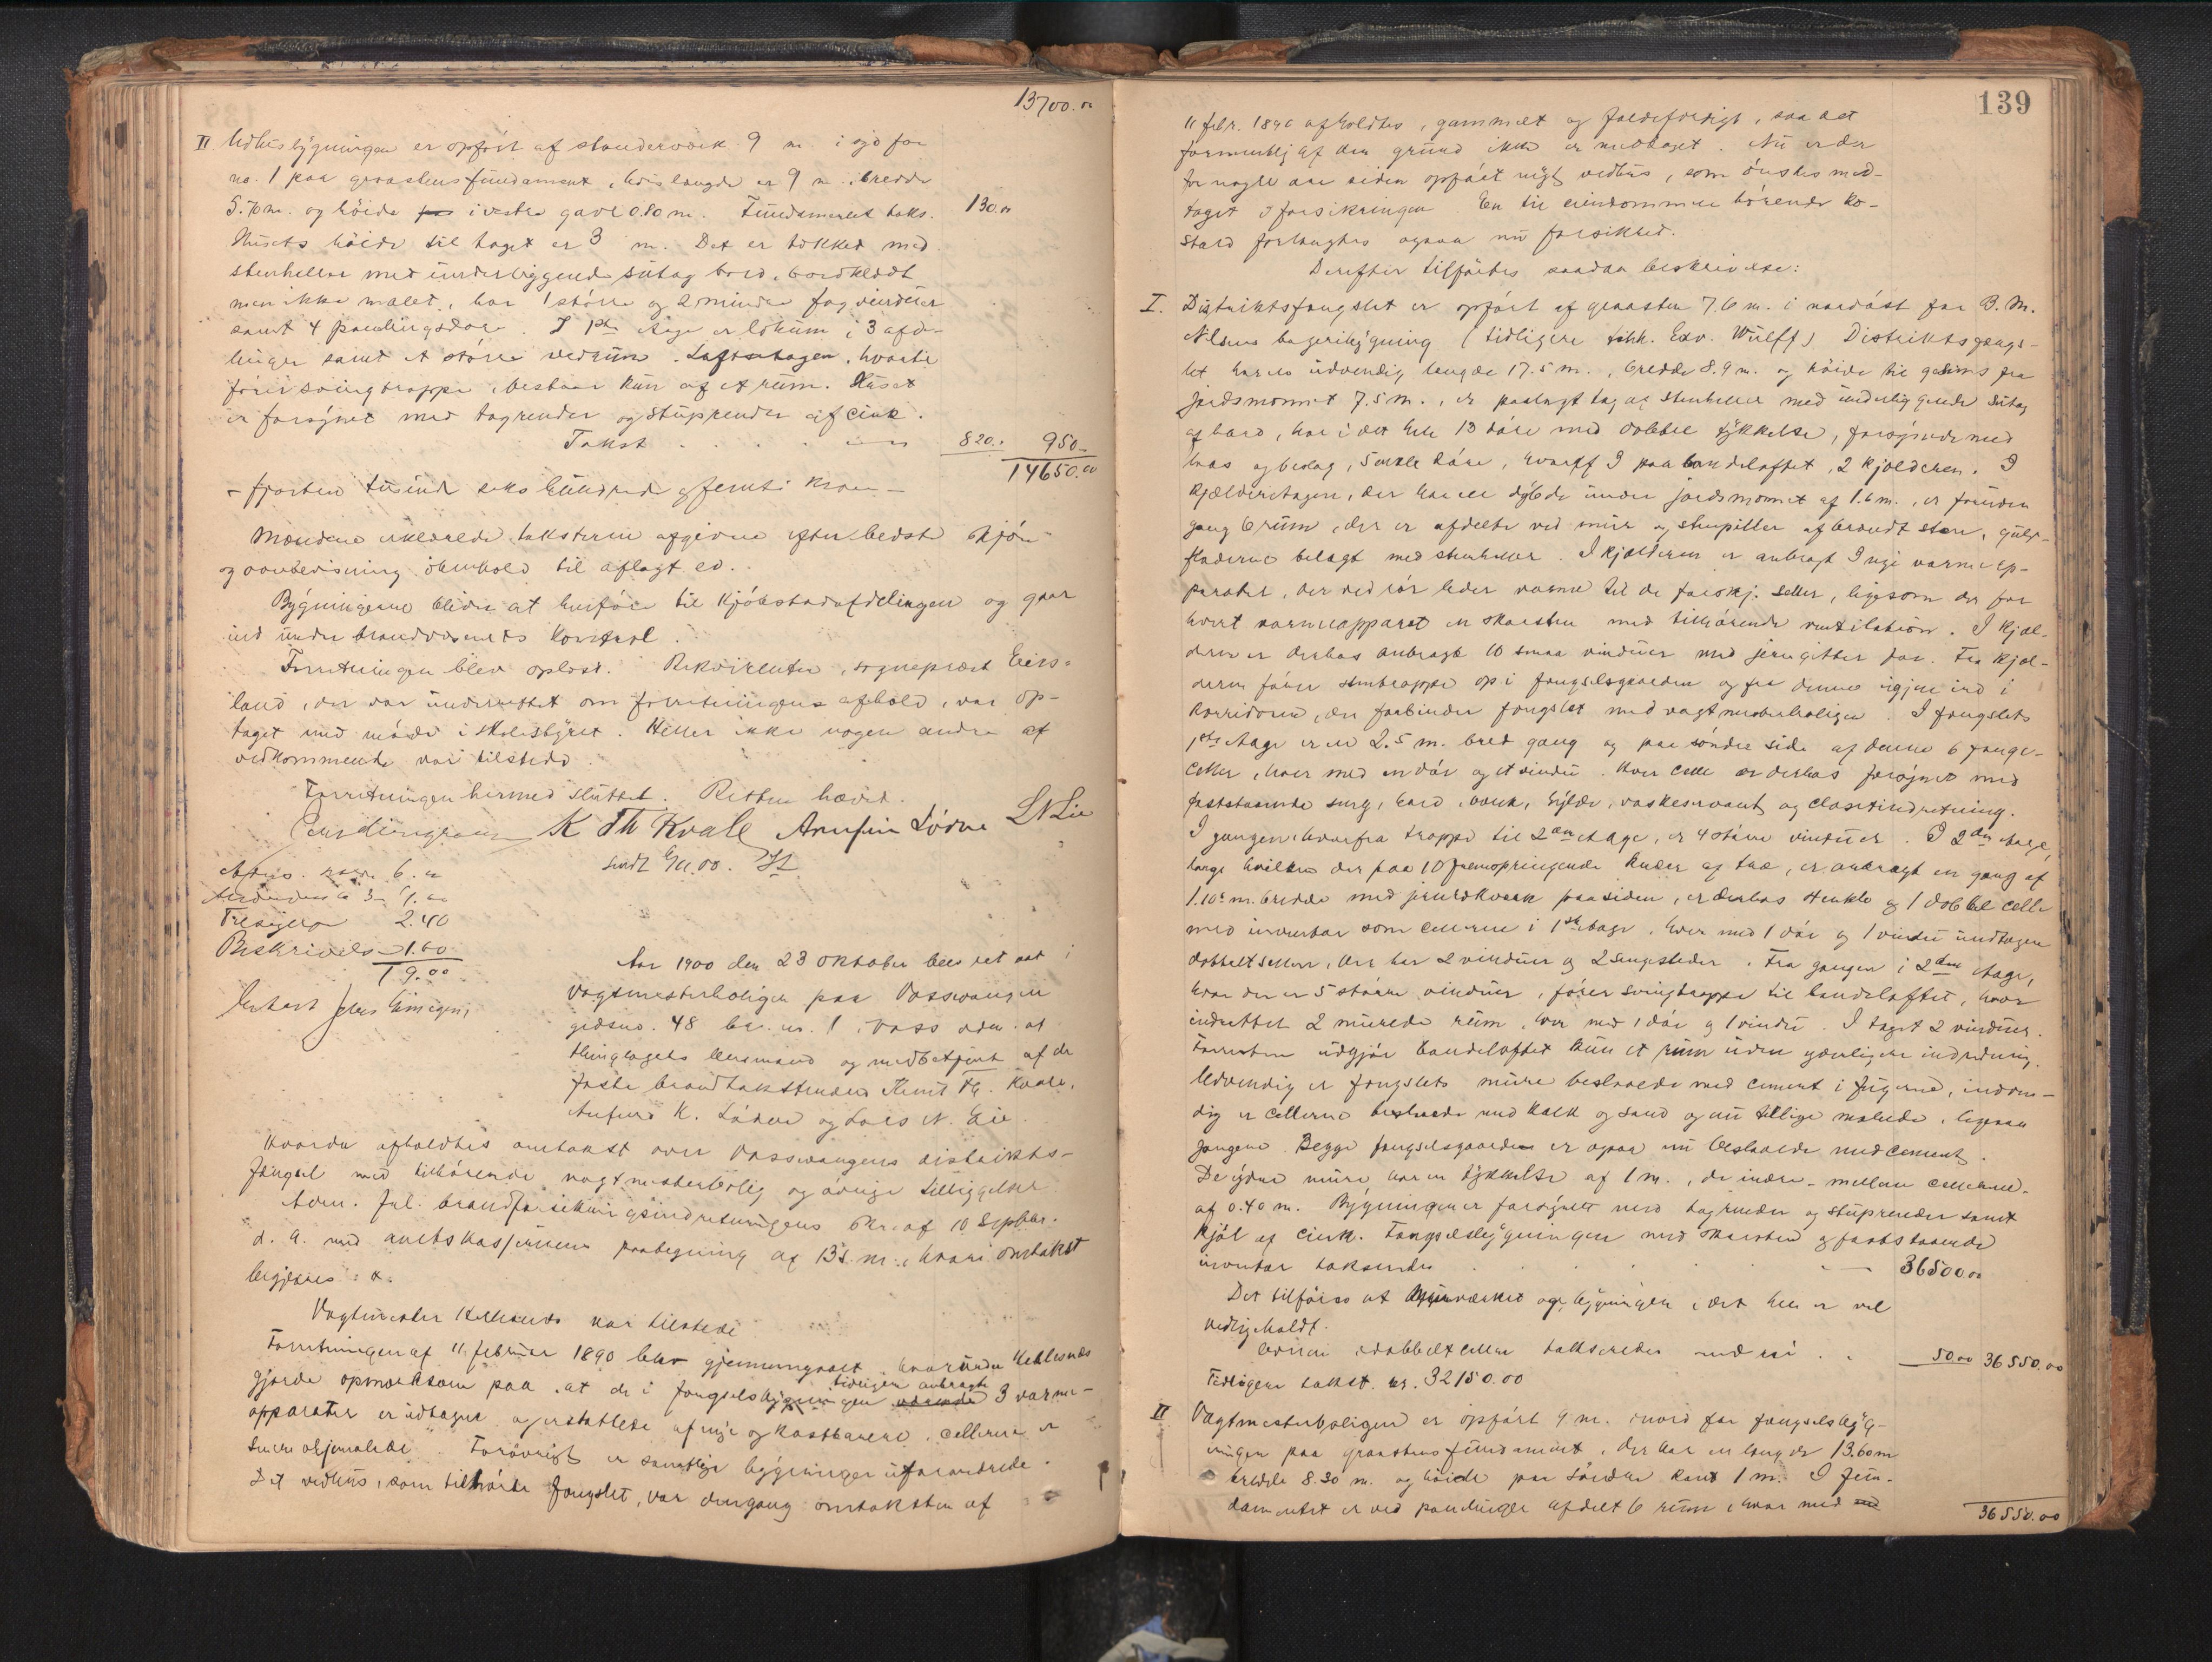 13700.00
II Udhusbygningen er opført af stenderværk 9 m. i syd for
no. 1 paa graastensfundament, hvis længde er 9 m., bredde
5.70 m. og høide i vestre gavl 0.80 m. Fundamentet taks. 130.00
Husets høide til taget er 3 m. Det er tækket med
stenheller med underliggende sutag bord, bordklædt
men ikke malet, har 1 større og 2 mindre fag vinduer
samt 4 panelingsdøre. I 1ste etage er lokum i 3 afde-
linger samt et større vedrum. Loftsetagen, hvortil
fører svingtrappe, bestaar kun af et rum. Huset
er forsynet med tagrender og stuprender af cink.
Takst 820.- 950.-
14650.00
- fjorten tusinde seks hundrede og femti kroner -
Mændene erklærede taksterne afgivne efter bedste skjøn
og overbevisning i henhold til aflagt ed.
Bygningerne bliver at henføre til kjøbstadafdelingen og gaar
ind under brandvæsenets kontrol.
Forretningen blev oplæst. Rekvirenten, sogneprest Eers-
land, der var underrettet om forretningens afhold, var op-
taget med møde i skolestyret. Heller ikke nogen andre af
vedkommende var tilstede.
Forretningen hermed sluttet. Retten hævet.
K Th Kvale Arnfin Lødve LNLie
6.00
3
2.40
Beskrivelse 1.60
19.00
Aar 1900 den 23 oktober blev ret sat i
vagtmesterboligen paa Vossevangen
gaardsno. 48 br. nr. 1, Voss adm. af
thinglagets lensmand og medbetjent af de
faste brandtakstmænd Knut Th. Kvale,
Anfind K. Lødve og Lars N. Lie.
Hvorda afholdtes omtakst over Vossevangens distrikts-
fængsel med tilhørende vagtmesterbolig og øvrige tilliggelser
Adm. frl. brandforsikringsindretningens skr. af 10 Septbr.
d. a. med amtskasserens paategning af 13 s. m., hvori omtakst
begjæres.
Vagtmester Kellesnes var tilstede
Forretningen af 11 februar 1890 blev gjennemgaaet, hvorunder Kellesnes
gjorde opmærksom paa, at de i fængselsbygningen tidligere anbragte 3 varme-
apparater er udtagne og erstattede af nye og kostbarere, cellerne er
senere oljemalede. Forøvrigt er samtlige bygninger uforandrede.
Det vedhus, som tilhørte fængslet, var dengang omtaksten af
139
11 febr. 1890 afholdtes, gammelt og faldefærdigt, saa det
formentlig af den grund ikke er medtaget. Nu er der
for nogle aar siden opført nyt vedhus, som ønskes med-
taget i forsikringen. En til eiendommen hørende ko-
stald forlangtes ogsaa nu forsikret.
Derefter tilførtes saadan beskrivelse:
I. Distriktsfængslet er opført af graasten 7.6 m. i nordøst for B. M.
Nilsens bageribygning (tidligere tilh. Edv. Wulff) Distriktsfængs-
let har en udvendig længde 17.5 m., bredde 8.9 m. og høide til gesims fra
jordsmonnet 7.5 m., er paalagt tag af stenheller med underliggende sutag
af bord, har i det hele 13 døre med dobbel tykkelse, forsynede med
laas og beslag, 5 enkle døre, hvoraf 3 paa bandeloftet, 2 kjælderen. I
kjælderetagen, der har en dybde under jordsmonnet af 1.6 m., er foruden
gang 6 rum, der er afdelte ved mur og stenpiller af brændt sten, gulv-
fladerne belagt med stenheller. I kjælderen er anbragt 3 nye varmeap-
parater, der ved rør leder varme til de forskj. celler, ligesom der for
hvert varmeapparat en skorsten med tilhørende ventilation. I kjæl-
deren er derhos anbragt 10 smaa vinduer med jerngitter for. Fra kjæl-
deren fører stentrappe op i fængselsgaarden og fra denne igjen ind i
korridoren, der forbinder fængslet med vagtmesterboligen. I fængslets
1ste etage er en 2.5 m. bred gang og paa søndre side af denne 6 fange-
celler, hver med en dør og et vindu. Hver celle er derhos forsynet med
faststaaende seng, bord, bænk, hylde, vaskeservant og closetindretning.
I gangen, hvorfra trappe til 2den etage, er 4 større vinduer. I 2den etage,
langs hvilken der paa 10 fremspringende knær af træ, er anbragt en gang af
1.10 m. bredde med jernrekverk paa siden, er derhos 4 enkle og 1 dobbel celle
med inventar som cellerne i 1ste etage, hver med 1 dør og 1 vindu undtagen
dobbeltcellen, der har 2 vinduer og 2 sengesteder. Fra gangen i 2den etage,
hvor der er 5 større vinduer, fører svingtrappe til bandeloftet, hvor
indrettet 2 murede rum, hver med 1 dør og 1 vindu. I taget 2 vinduer.
Forresten udgjør bandeloftet kun et rum uden yderligere indredning.
Udvendig er fængslets mure beslaaede med cement i fugerne, indven-
dig er cellerne beslaaede med kalk og sand og nu tillige malede, ligesaa
gangene. Begge fængselsgaarden er ogsaa nu beslaaede med cement.
De ydre mure har en tykkelse af 1 m., de indre - mellem cellerne -
af 0.40 m. Bygningen er forsynet med tagrender og stuprender samt
kjøl af cink. Fængselsbygningen med skorsten og faststaaende
inventar takseredes 36500.00
Det tilføies at murværket og bygningen, det hele er vel
vedligeholdt.
dobbeltcellen takseredes med 50.00 36550.00
Tidligere takst kr. 32150.00
II Vagtmesterboligen er opført 9 m. i nord for fængselsbyg-
ningen paa graastensfundament, der har en længde 13.60 m
bredde 8.30 m. og høide paa søndre kant 1 m. I fun-
damentet er ved panelinger afdelt 6 rum, hvor med
36550.00